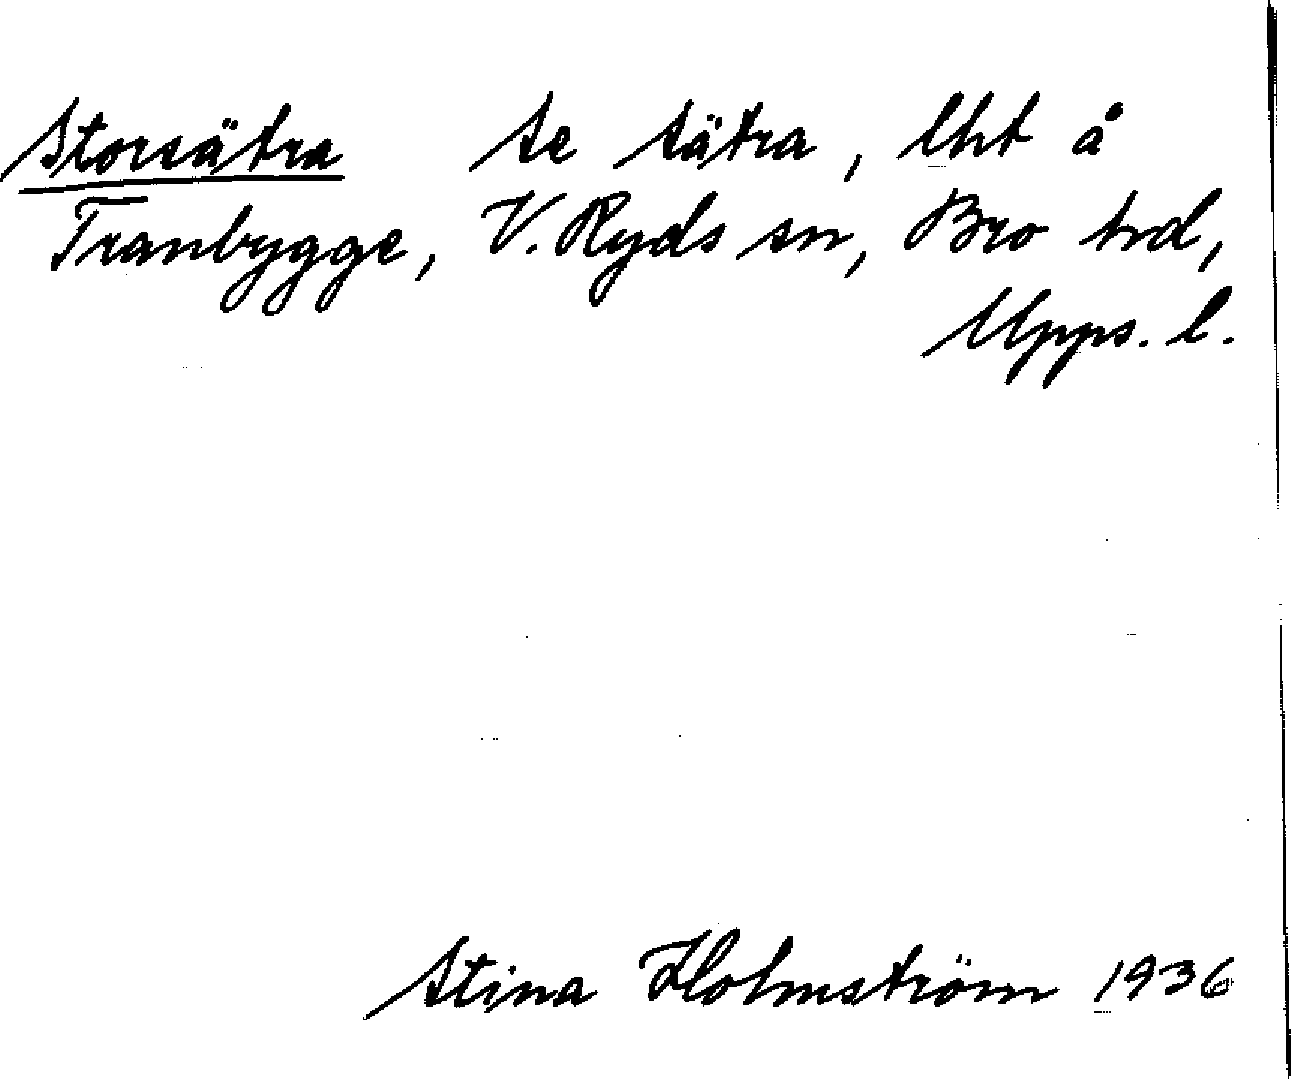 Storsätra Se Sätra, lht å
Tranbygge, V. Ryds sn, Bro hd,
Upps. l.
Stina Holmström 1936